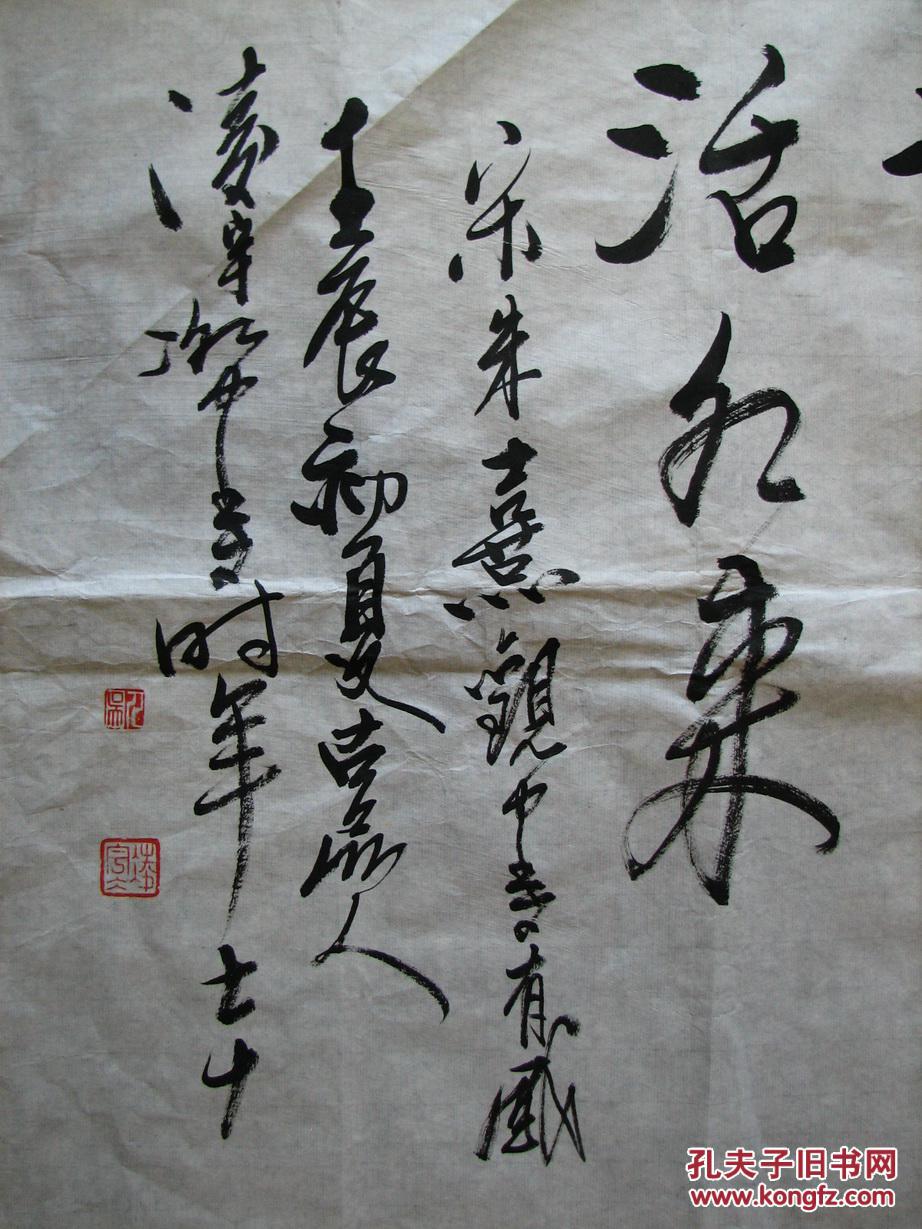 活水来
宋朱熹觀书有感
壬辰初夏古鄣人
凌宇 书时年七十
孔夫子旧书网
www.kongfz.com